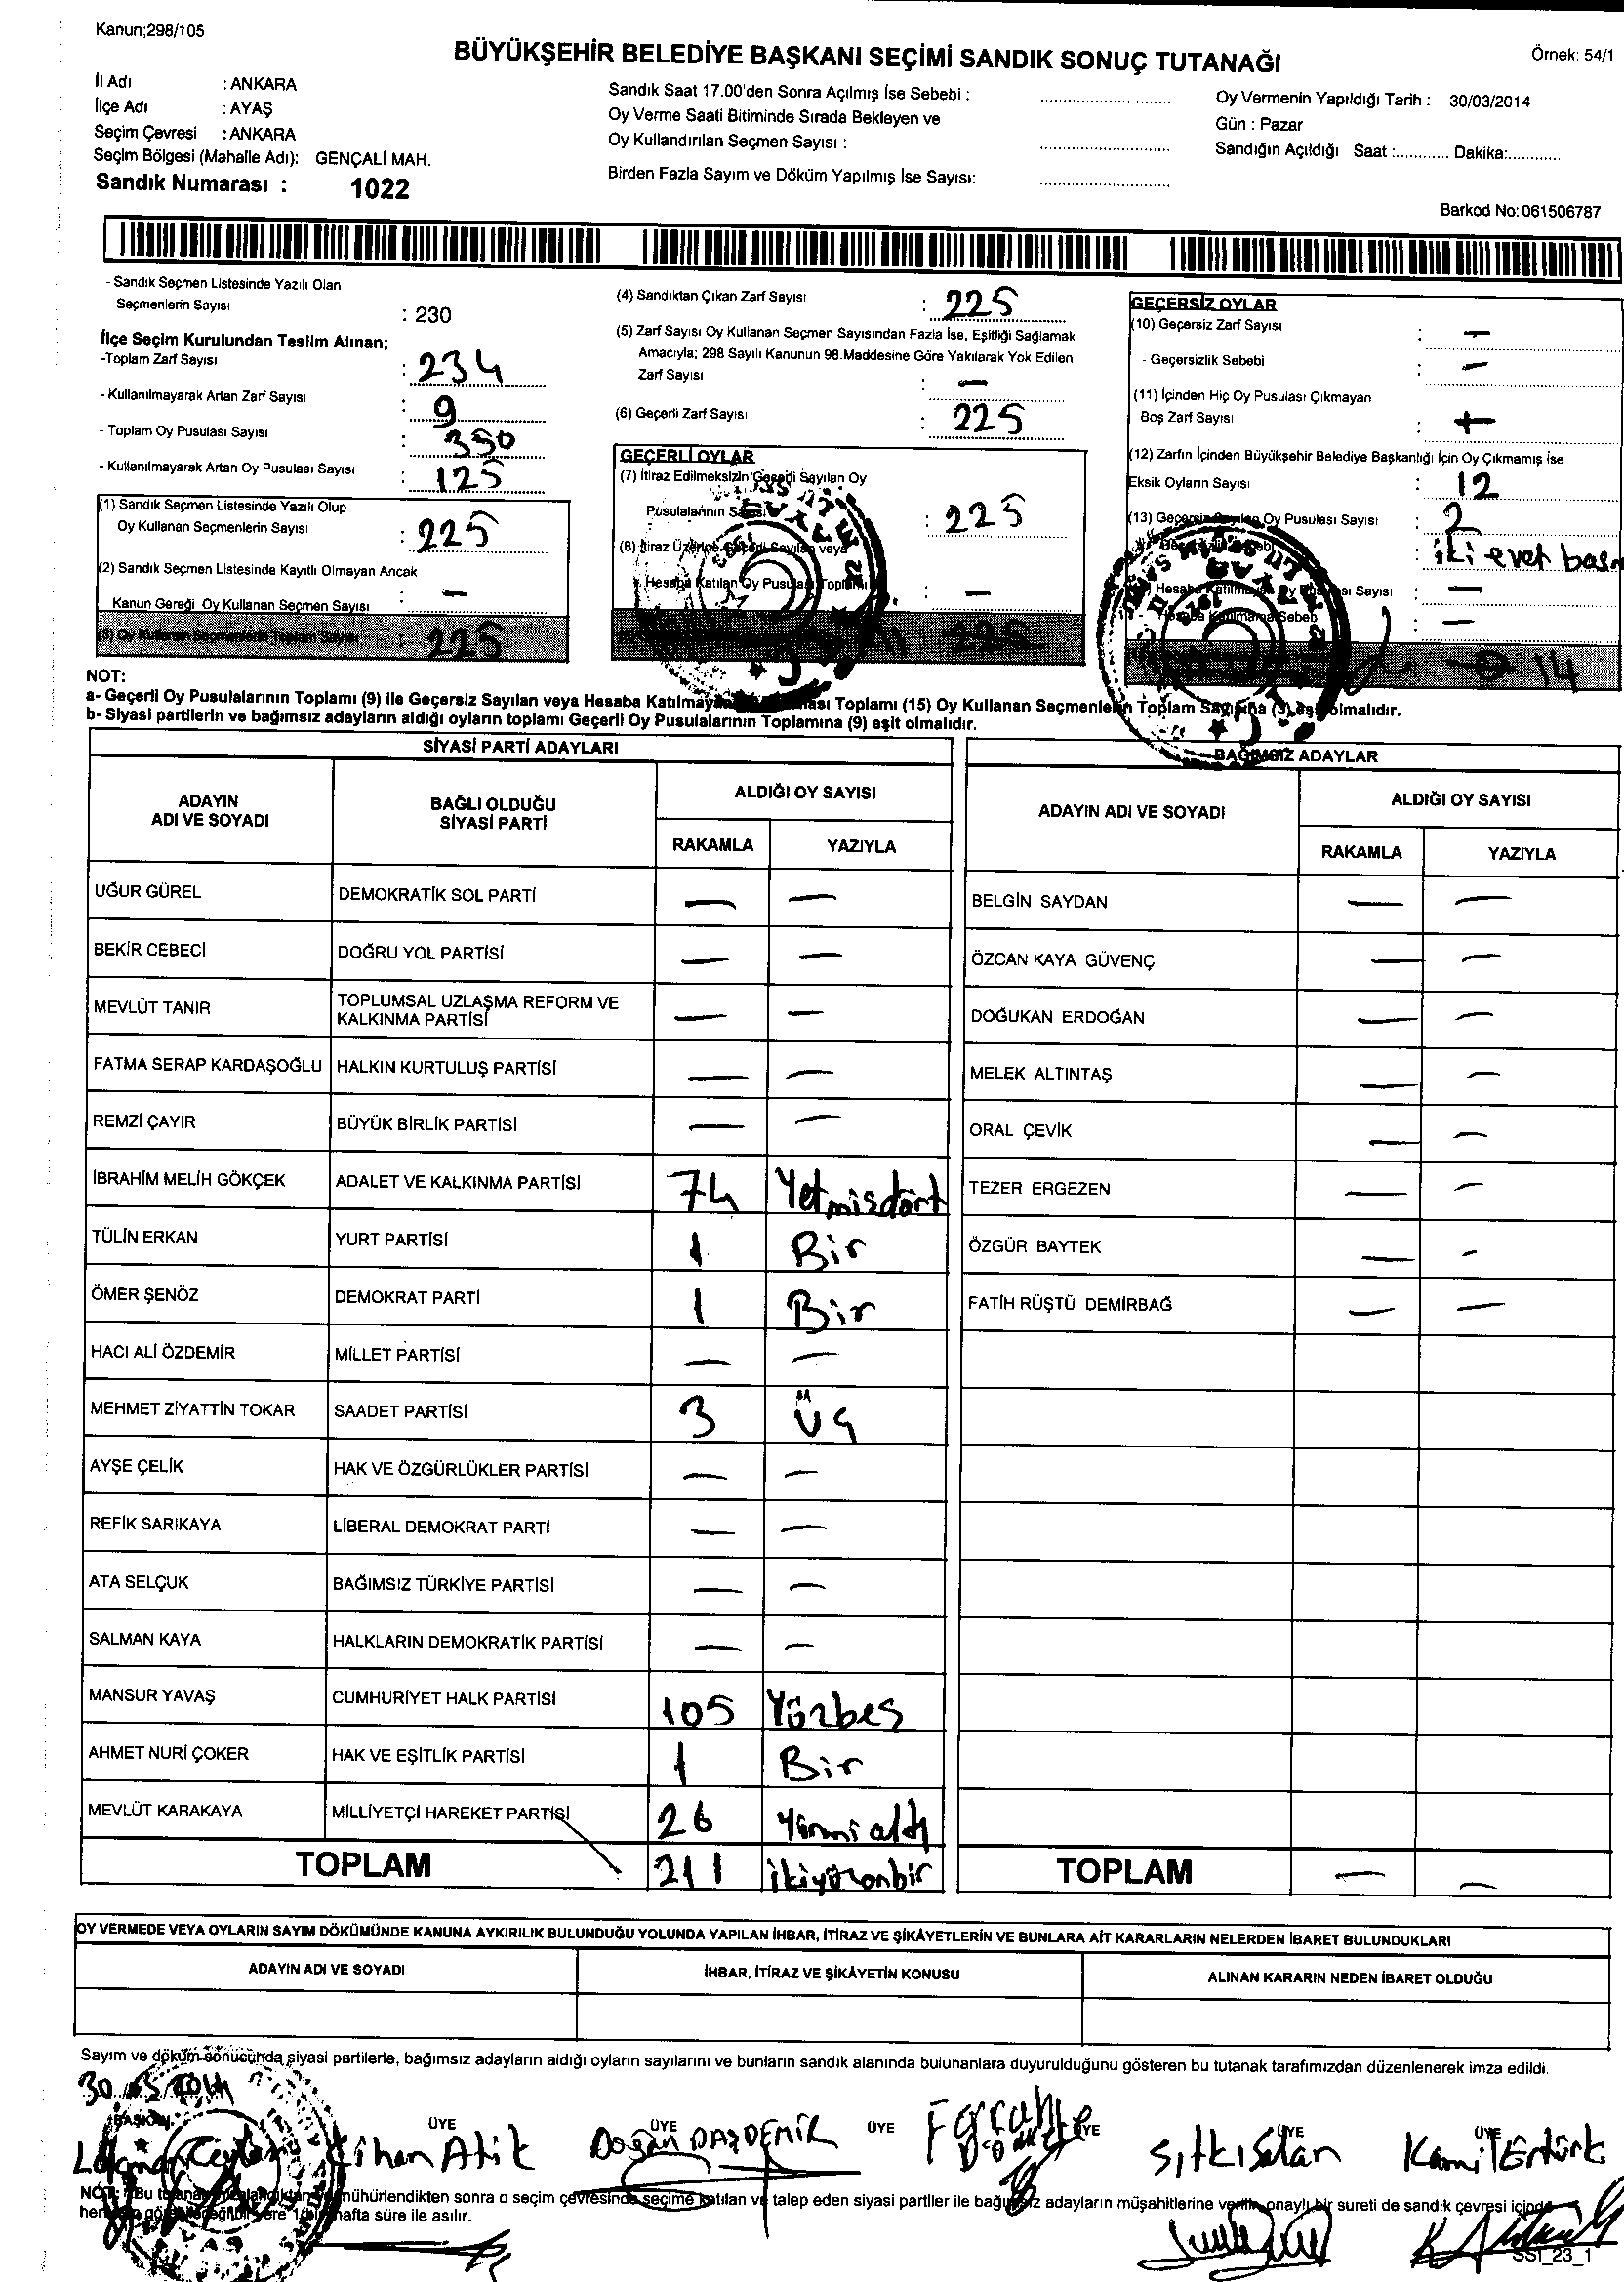 Kanun;298/105
BÜYÜKŞEHİR BELEDİYE BAŞKANI SEÇİMİ SANDIK SONUÇ TUTANAĞI
Örnek: 54/1
İl Adı : ANKARA
İlçe Adı : AYAŞ
Seçim Çevresi : ANKARA
Seçim Bölgesi (Mahalle Adı): GENÇALİ MAH.
Sandık Numarası : 1022
Sandık Saat 17.00'den Sonra Açılmış İse Sebebi :
Oy Verme Saati Bitiminde Sırada Bekleyen ve
Oy Kullandırılan Seçmen Sayısı :
Birden Fazla Sayım ve Döküm Yapılmış İse Sayısı:
Oy Vermenin Yapıldığı Tarih : 30/03/2014
Gün : Pazar
Sandığın Açıldığı Saat :............ Dakika:............
Barkod No:061506787
- Sandık Seçmen Listesinde Yazılı Olan
Seçmenlerin Sayısı : 230
İlçe Seçim Kurulundan Teslim Alınan;
-Toplam Zarf Sayısı : 234
- Kullanılmayarak Artan Zarf Sayısı : 9
- Toplam Oy Pusulası Sayısı : 350
- Kullanılmayarak Artan Oy Pusulası Sayısı : 125
(1) Sandık Seçmen Listesinde Yazılı Olup
Oy Kullanan Seçmenlerin Sayısı : 225
(2) Sandık Seçmen Listesinde Kayıtlı Olmayan Ancak
Kanun Gereği Oy Kullanan Seçmen Sayısı : —
(3) Oy Kullanan Seçmenlerin Toplam Sayısı : 225
(4) Sandıktan Çıkan Zarf Sayısı : 225
(5) Zarf Sayısı Oy Kullanan Seçmen Sayısından Fazla İse, Eşitliği Sağlamak
Amacıyla; 298 Sayılı Kanunun 98.Maddesine Göre Yakılarak Yok Edilen
Zarf Sayısı : —
(6) Geçerli Zarf Sayısı : 225
GEÇERLİ OYLAR
(7) İtiraz Edilmeksizin Geçerli Sayılan Oy
Pusulalarının Sayısı : 225
(8) İtiraz Üzerine Geçerli Sayılan veya
Hesaba Katılan Oy Pusulası Toplamı : —
225
GEÇERSİZ OYLAR
(10) Geçersiz Zarf Sayısı : —
- Geçersizlik Sebebi : —
(11) İçinden Hiç Oy Pusulası Çıkmayan
Boş Zarf Sayısı :
(12) Zarfın İçinden Büyükşehir Belediye Başkanlığı İçin Oy Çıkmamış ise
Eksik Oyların Sayısı : 12
(13) Geçersiz Sayılan Oy Pusulası Sayısı : 2
Geçersizlik Sebebi : iki evet
Hesaba Katılmayan Oy Pusulası Sayısı : —
Hesaba Katılmama Sebebi : —
14
NOT:
a- Geçerli Oy Pusulalarının Toplamı (9) ile Geçersiz Sayılan veya Hesaba Katılmayan Toplamı (15) Oy Kullanan Seçmenlerin Toplam Sayısına (3) eşit olmalıdır.
b- Siyasi partilerin ve bağımsız adayların aldığı oyların toplamı Geçerli Oy Pusulalarının Toplamına (9) eşit olmalıdır.
SİYASİ PARTİ ADAYLARI
ADAYIN ADI VE SOYADI BAĞLI OLDUĞU SİYASİ PARTİ ALDIĞI OY SAYISI
RAKAMLA YAZIYLA
UĞUR GÜREL DEMOKRATİK SOL PARTİ — —
BEKİR CEBECİ DOĞRU YOL PARTİSİ — —
MEVLÜT TANIR TOPLUMSAL UZLAŞMA REFORM VE KALKINMA PARTİSİ — —
FATMA SERAP KARDAŞOĞLU HALKIN KURTULUŞ PARTİSİ — —
REMZİ ÇAYIR BÜYÜK BİRLİK PARTİSİ — —
İBRAHİM MELİH GÖKÇEK ADALET VE KALKINMA PARTİSİ 74 Yetmişdört
TÜLİN ERKAN YURT PARTİSİ 1 Bir
ÖMER ŞENÖZ DEMOKRAT PARTİ 1 Bir
HACI ALİ ÖZDEMİR MİLLET PARTİSİ — —
MEHMET ZİYATTİN TOKAR SAADET PARTİSİ 3 Üç
AYŞE ÇELİK HAK VE ÖZGÜRLÜKLER PARTİSİ — —
REFİK SARIKAYA LİBERAL DEMOKRAT PARTİ — —
ATA SELÇUK BAĞIMSIZ TÜRKİYE PARTİSİ — —
SALMAN KAYA HALKLARIN DEMOKRATİK PARTİSİ — —
MANSUR YAVAŞ CUMHURİYET HALK PARTİSİ 105 Yüzbeş
AHMET NURİ ÇOKER HAK VE EŞİTLİK PARTİSİ 1 Bir
MEVLÜT KARAKAYA MİLLİYETÇİ HAREKET PARTİSİ 26 Yirmi altı
TOPLAM 211 ikiyüzonbir
BAĞIMSIZ ADAYLAR
ADAYIN ADI VE SOYADI ALDIĞI OY SAYISI
RAKAMLA YAZIYLA
BELGİN SAYDAN — —
ÖZCAN KAYA GÜVENÇ — —
DOĞUKAN ERDOĞAN — —
MELEK ALTINTAŞ — —
ORAL ÇEVİK — —
TEZER ERGEZEN — —
ÖZGÜR BAYTEK — —
FATİH RÜŞTÜ DEMİRBAĞ — —
TOPLAM — —
OY VERMEDE VEYA OYLARIN SAYIM DÖKÜMÜNDE KANUNA AYKIRILIK BULUNDUĞU YOLUNDA YAPILAN İHBAR, İTİRAZ VE ŞİKÂYETLERİN VE BUNLARA AİT KARARLARIN NELERDEN İBARET BULUNDUKLARI
ADAYIN ADI VE SOYADI İHBAR, İTİRAZ VE ŞİKÂYETİN KONUSU ALINAN KARARIN NEDEN İBARET OLDUĞU
Sayım ve döküm sonucunda siyasi partilerle, bağımsız adayların aldığı oyların sayılarını ve bunların sandık alanında bulunanlara duyurulduğunu gösteren bu tutanak tarafımızdan düzenlenerek imza edildi.
30/03/2014
BAŞKAN ÜYE ÜYE ÜYE ÜYE ÜYE ÜYE
Lokman Ceylan Cihan Atik Doğan Sıtkı Satan Kamil Ertürk
NOT: Bu mühürlendikten sonra o seçim çevresinde seçime katılan ve talep eden siyasi partiler ile bağımsız adayların müşahitlerine verilir, onaylı bir sureti de sandık çevresi içinde
hafta süre ile asılır.
SST_23_1